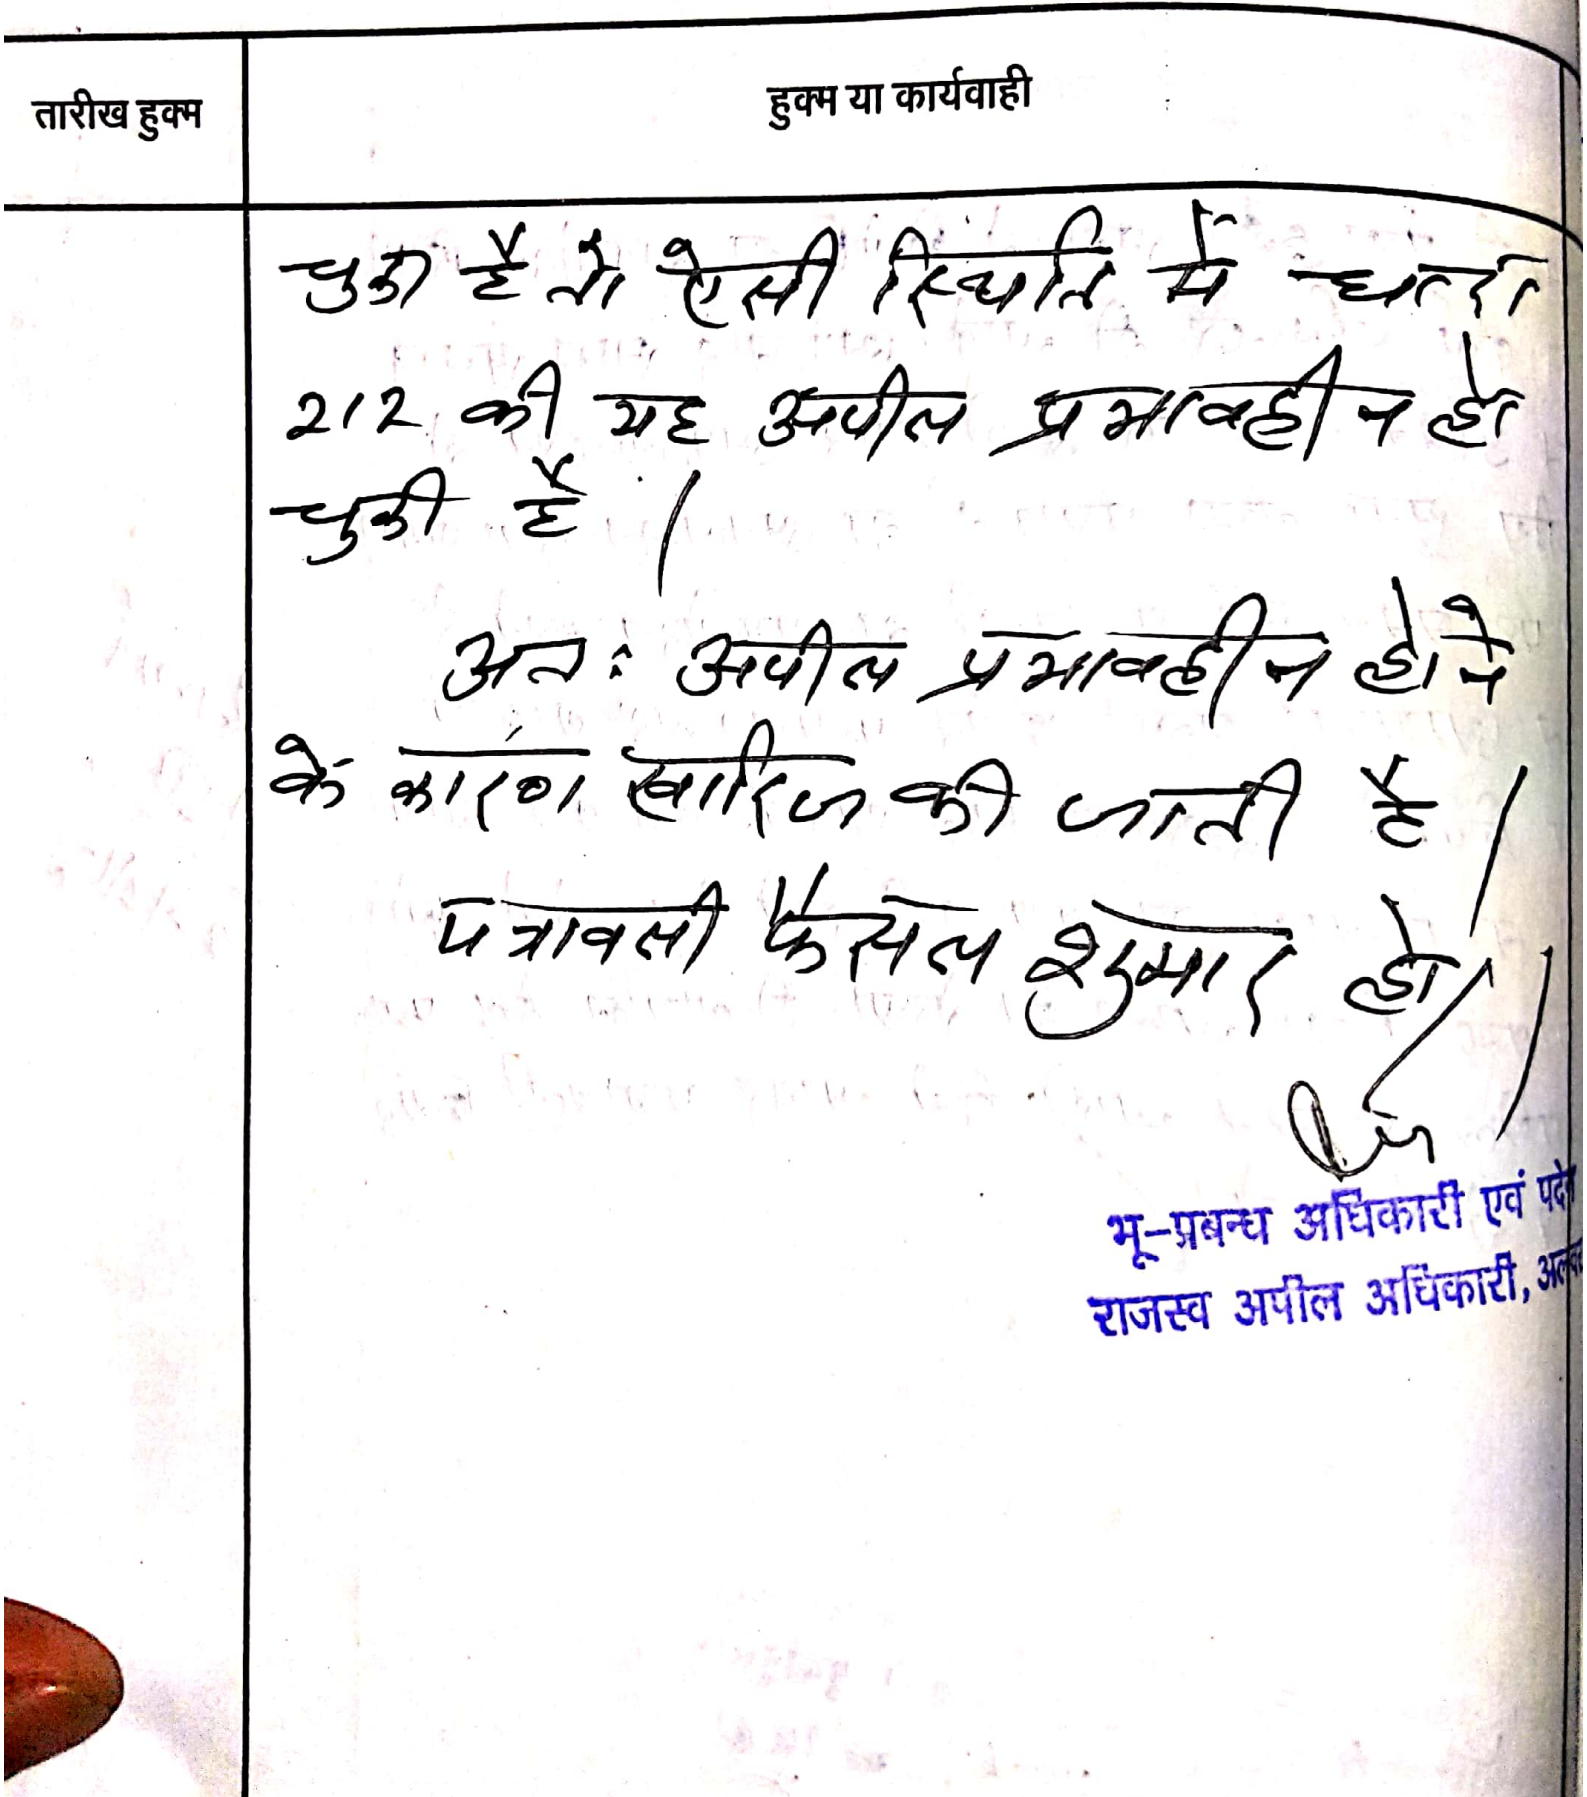 तारीख हुक्म
हुक्म या कार्यवाही
चुका है तो ऐसी स्थिति में धारा
212 की यह अपील प्रभावहीन हो
चुकी है।
अतः अपील प्रभावहीन होने
के कारण खारिज की जाती है।
पत्रावली फैसल शुमार हो।
भू-प्रबन्ध अधिकारी एवं
राजस्व अपील अधिकारी,